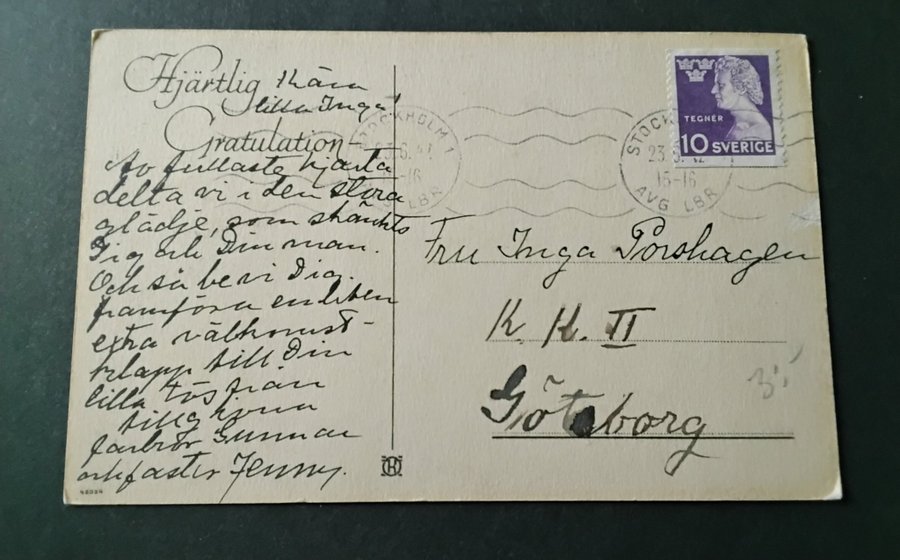 Hjärtlig
Gratulation
Kära
lilla Inga!
Av fullaste hjärta
delta vi i den stora
glädje, som skänkts
Dig och Din man.
Och så be vi Dig
framföra en liten
extra välkomst-
klapp till Din
lilla tös från
tillgivna
farbror Gunnar
och faster Jenny.
STOCKHOLM 1
AVG LBR
STOCK
23
15-16
AVG LBR
TEGNÉR
10 SVERIGE
Fru Inga Porshagen
K. K. II
Göteborg
3:-